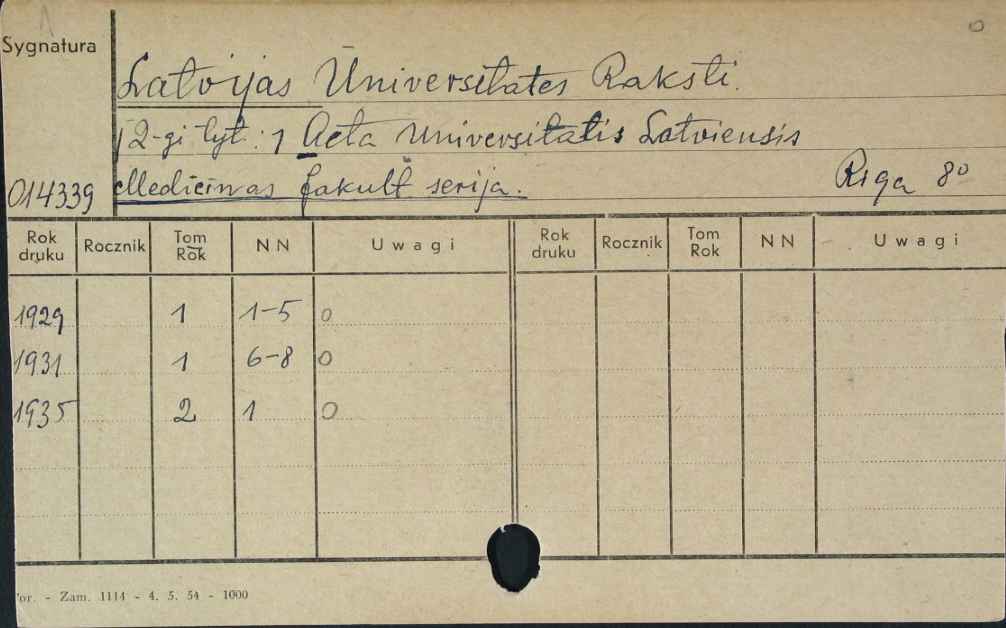 Sygnatura
Latvijas Ūniversitates Raksti.
[2-gi tyt: 1 Acta Universitatis Latviensis
014339 Medicinas fakult serija. Riga 8°
Rok druku Rocznik Tom Rok NN Uwagi Rok druku Rocznik Tom Rok NN Uwagi
1929 1 1-5 0
1931 1 6-8 0
1935 2 1 0
or. - Zam. 1114 - 4. 5. 54 - 1000